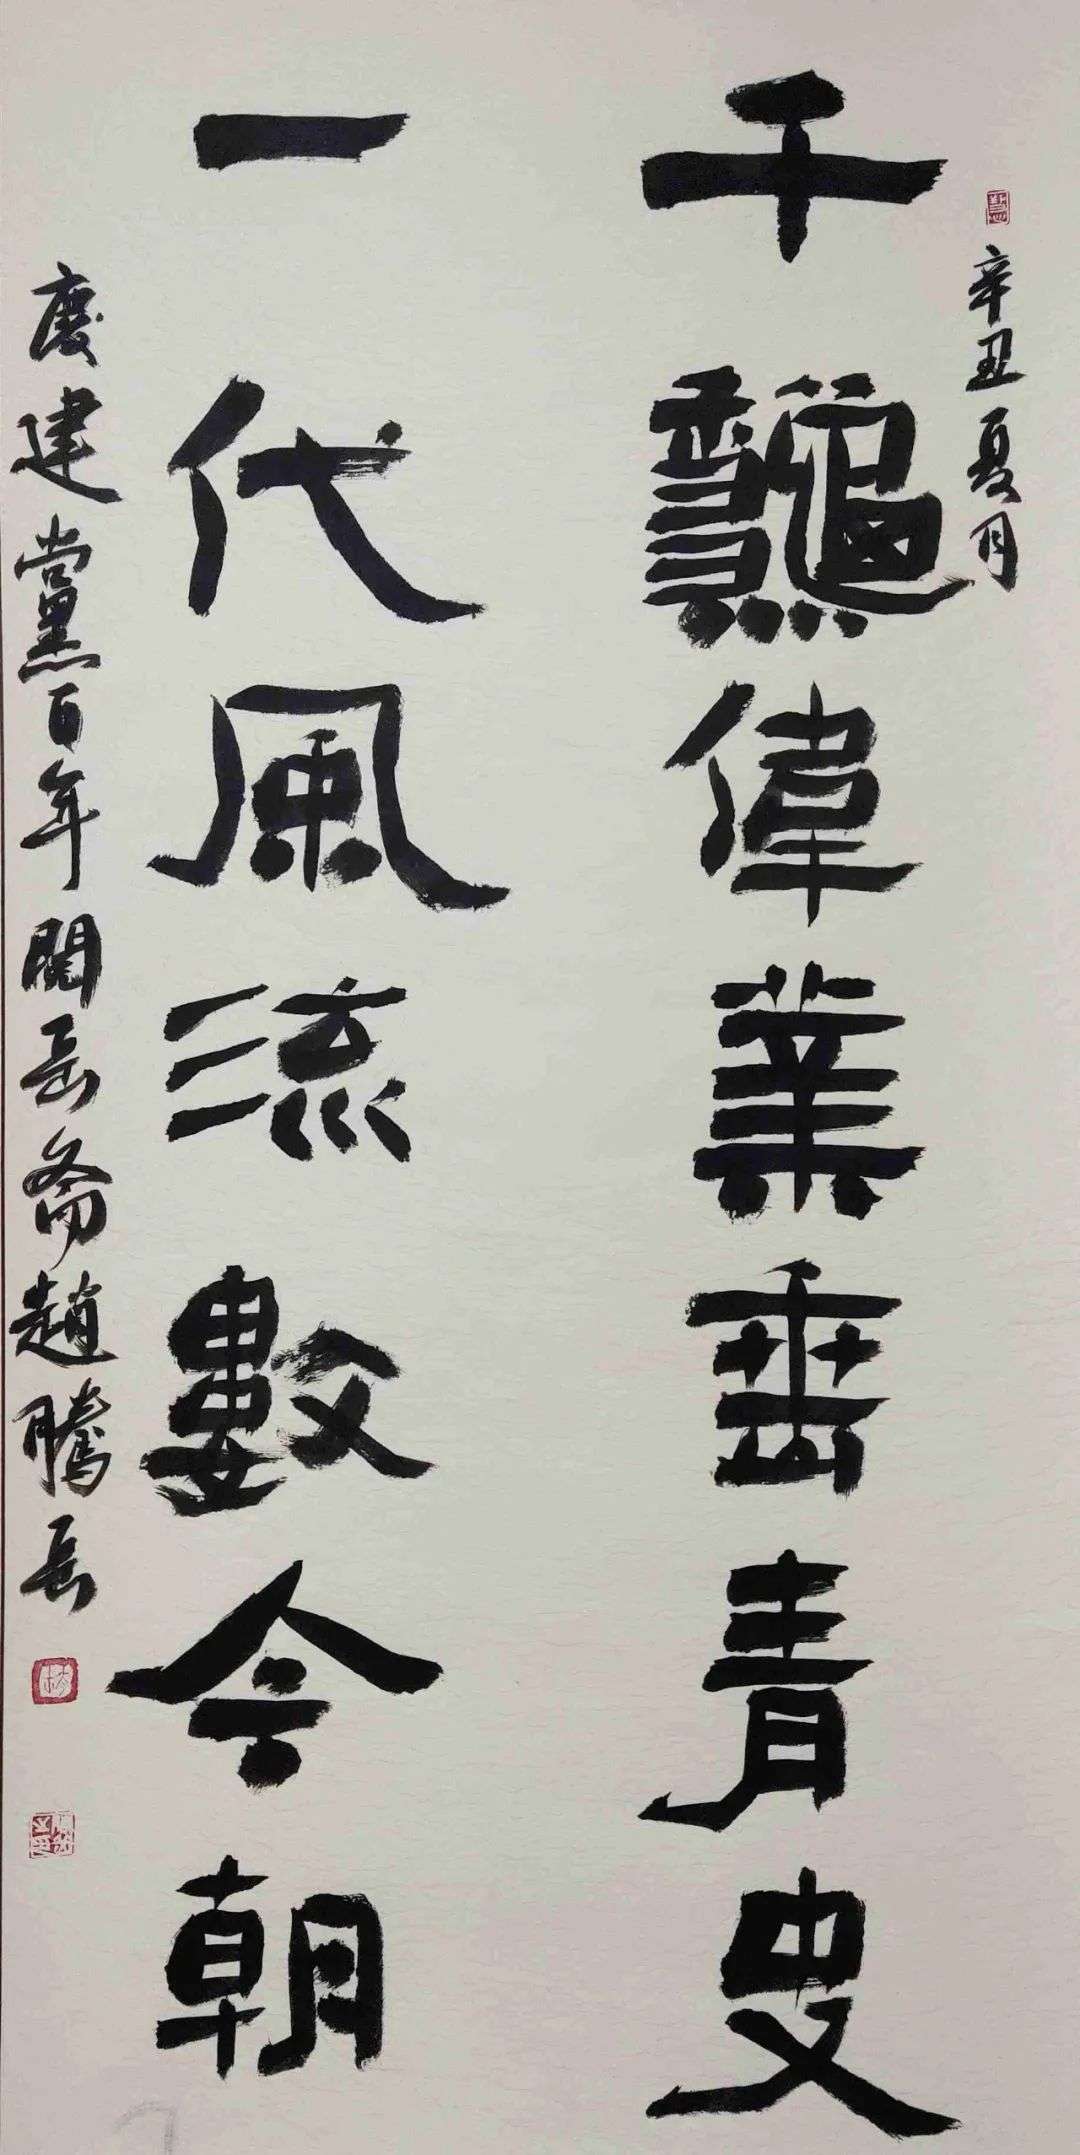 辛丑夏月
千龝偉業垂青史
一代風流數今朝
慶建黨百年聞岳斋趙騰岳